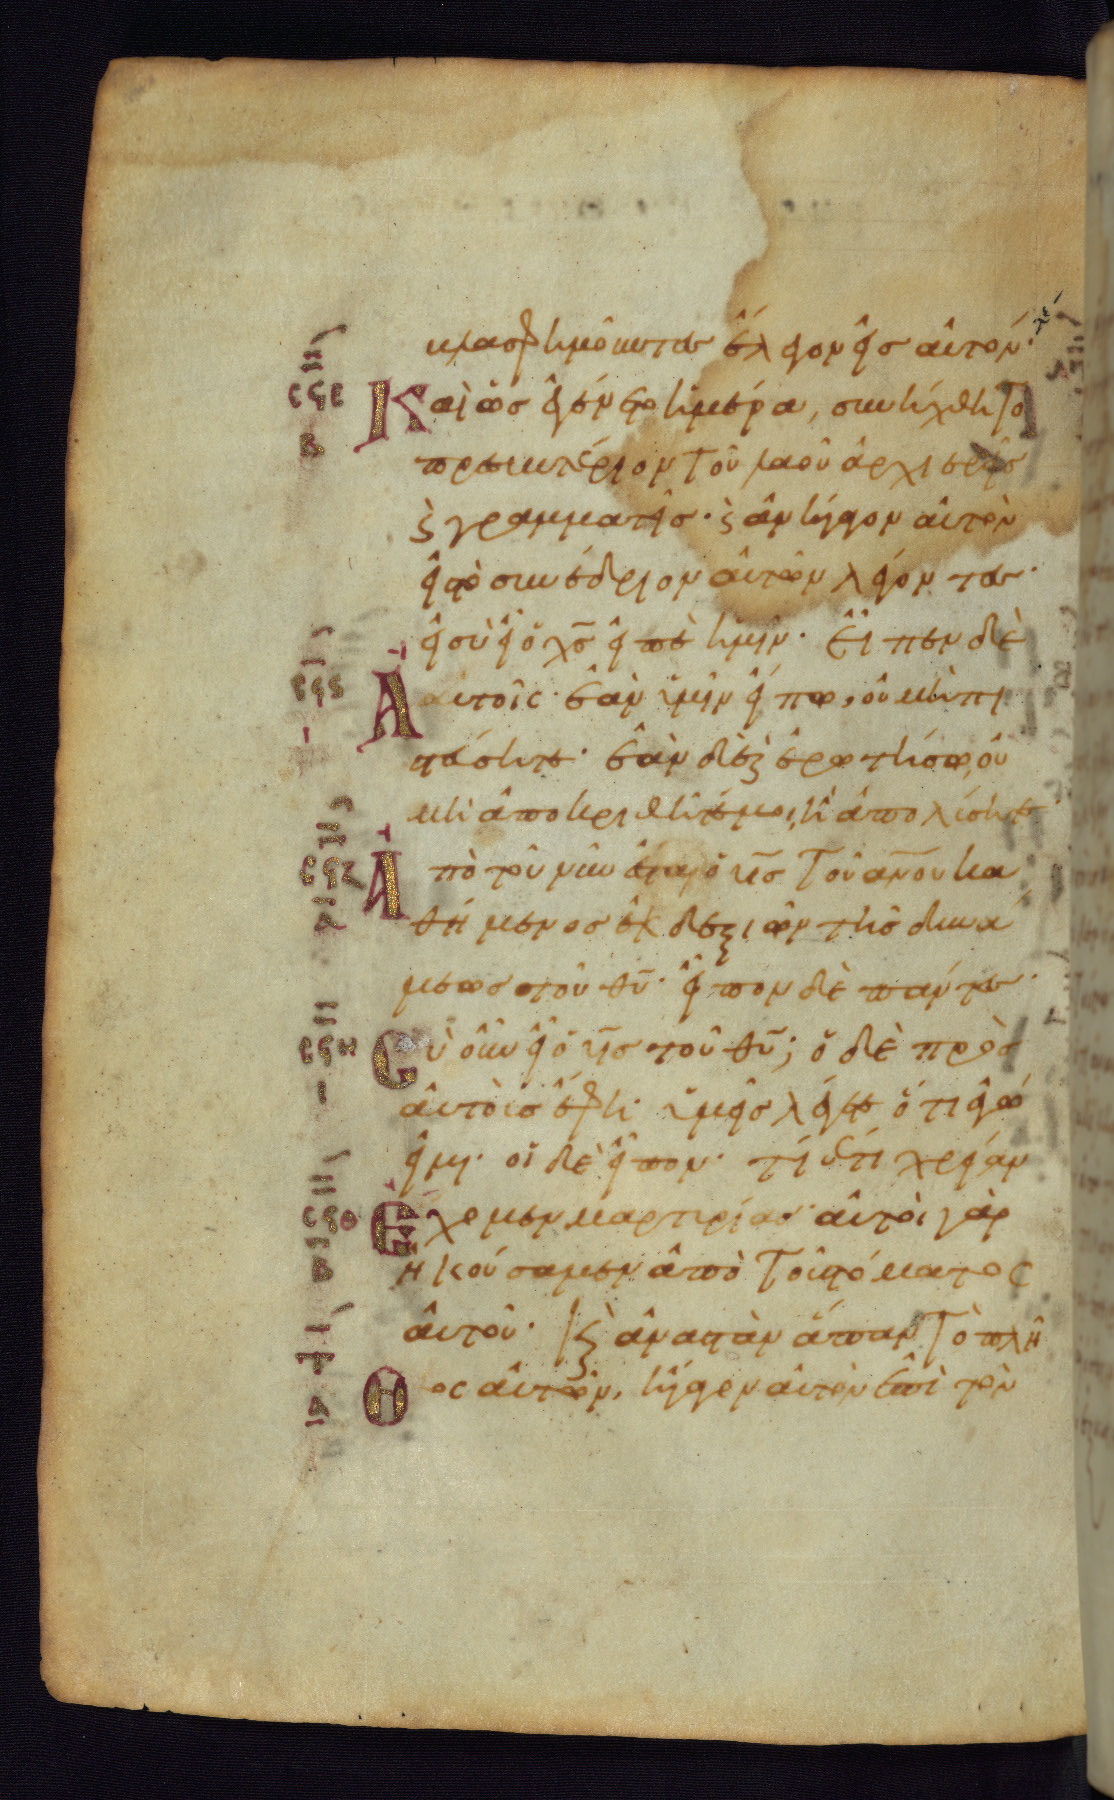 βλασφημοῦντες ἔλεγον εἰς αὐτόν·
Καὶ ὡς ἐγένετο ἡμέρα, συνήχθη τὸ
πρεσβυτέριον τοῦ λαοῦ ἀρχιερεῖς
ϗ γραμματεῖς· ϗ ἀνήγαγον αὐτὸν
εἰς τὸ συνέδριον αὐτῶν λέγοντες·
εἰ σὺ εἶ ὁ χς̅ εἰπὲ ἡμῖν· Εἶπεν δὲ
αὐτοῖς· ἐὰν ὑμῖν εἴπω, οὐ μὴ πι
στεύσητε· ἐὰν δὲ ϗ ἐρωτήσω, οὐ
μὴ ἀποκριθῆτέ μοι, ἢ ἀπολύσητε·
Ἀπὸ τοῦ νῦν ἔσται ὁ υς̅ τοῦ ανου̅ κα
θήμενος ἐκ δεξιῶν τῆς δυνά
μεως τοῦ θυ̅· εἶπον δὲ πάντες·
Σὺ οὖν εἶ ὁ υς̅ τοῦ θυ̅; ὁ δὲ πρὸς
αὐτοὺς ἔφη· ὑμεῖς λέγετε ὅτι ἐγώ
εἰμι· οἱ δὲ εἶπον· τί ἔτι χρείαν
ἔχομεν μαρτυρίας· αὐτοὶ γὰρ
ἠκούσαμεν ἀπὸ τοῦ στόματος
αὐτοῦ· ϗ ἀναστὰν ἅπαν τὸ πλῆ
θος αὐτῶν, ἤγαγεν αὐτὸν ἐπὶ τὸν
σϟε
β
σϟϛ
ι
σϟζ
α
σϟη
ι
σϟθ
β
τ
α